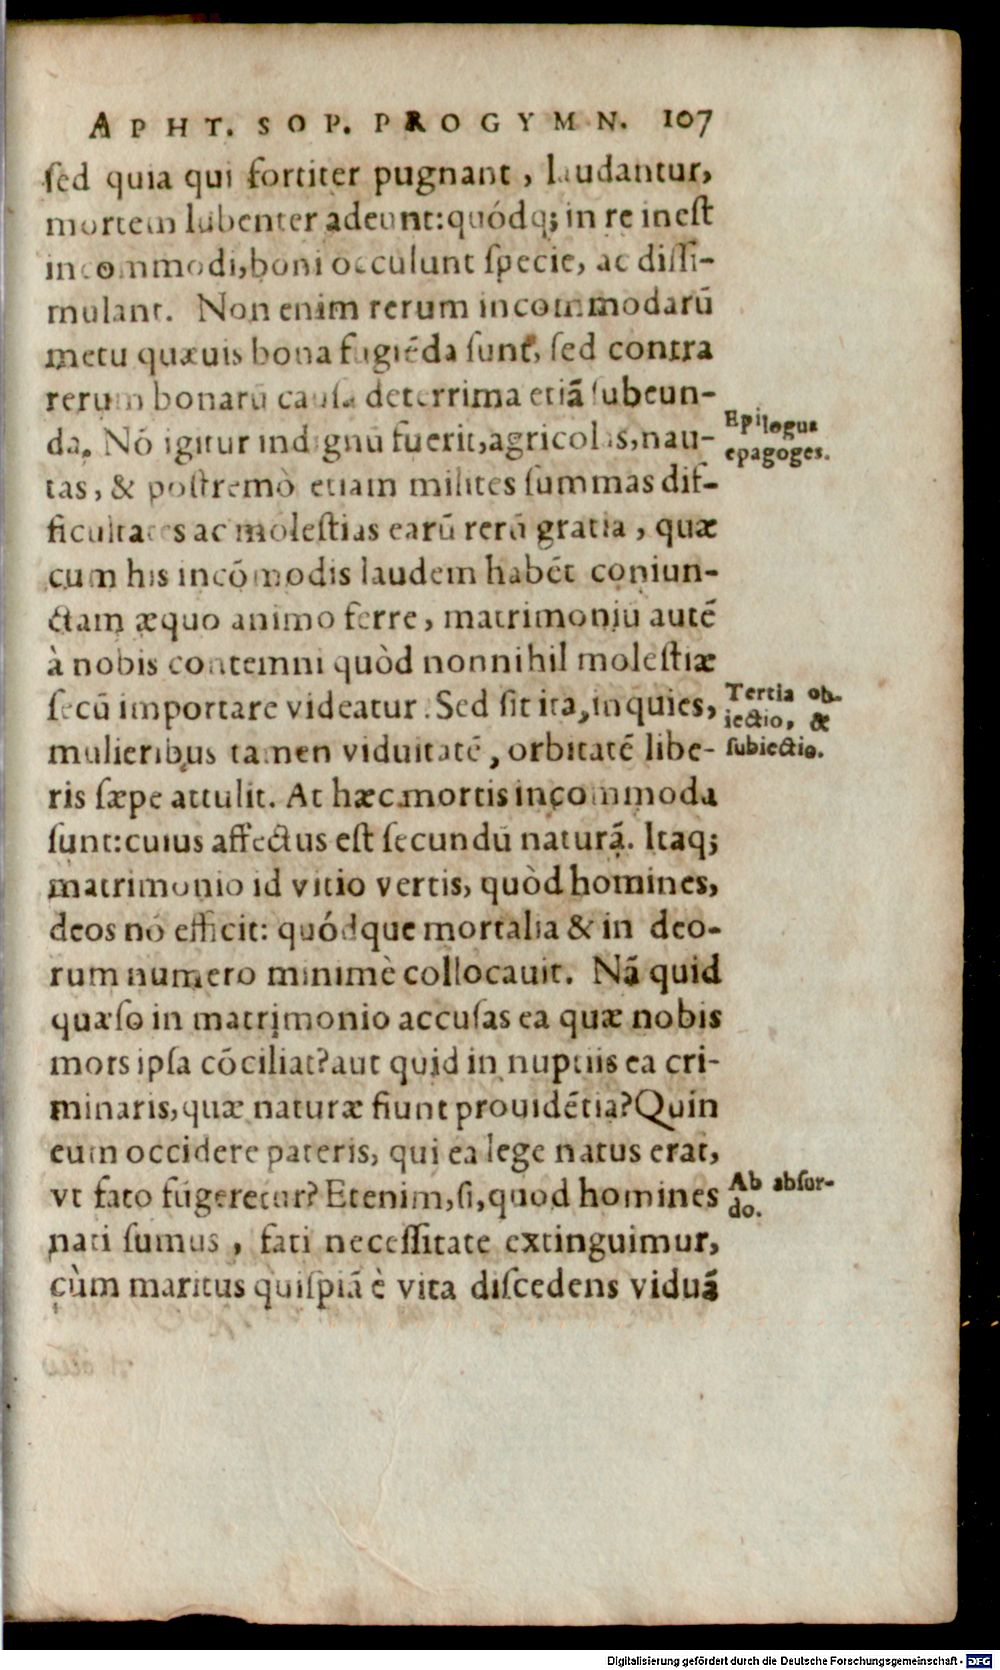 APHT. SOP. PROGYMN. 107
sed quia qui fortiter pugnant, laudantur,
mortem lubenter adeunt: quódq; in re inest
incommodi, boni occulunt specie, ac dissi-
mulant. Non enim rerum incommodarū
metu quæuis bona fugiēda sunt, sed contra
rerum bonarū causa deterrima etiā subeun-
da. Nō igitur indignū fuerit, agricolas, nau-
tas, & postremò etiam milites summas dif-
ficultates ac molestias earū rerū gratia, quæ
cum his incōmodis laudem habēt coniun-
ctam æquo animo ferre, matrimoniū autē
à nobis contemni quòd nonnihil molestiæ
secū importare videatur. Sed sit ita, inquies,
mulieribus tamen viduitatē, orbitatē libe-
ris sæpe attulit. At hæc mortis incommoda
sunt: cuius affectus est secundū naturā. Itaq;
matrimonio id vitio vertis, quòd homines,
deos nō efficit: quódque mortalia & in deo-
rum numero minimè collocauit. Nā quid
quæso in matrimonio accusas ea quæ nobis
mors ipsa cōciliat? aut quid in nuptiis ea cri-
minaris, quæ naturæ fiunt prouidētia? Quin
eum occidere pateris, qui ea lege natus erat,
vt fato fūgeretur? Etenim, si, quod homines
nati sumus, fati necessitate extinguimur,
cùm maritus quispiā è vita discedens viduā
Epilogus
epagoges.
Tertia ob-
iectio, &
subiectio.
Ab absur-
do.
Digitalisierung gefördert durch die Deutsche Forschungsgemeinschaft - DFG